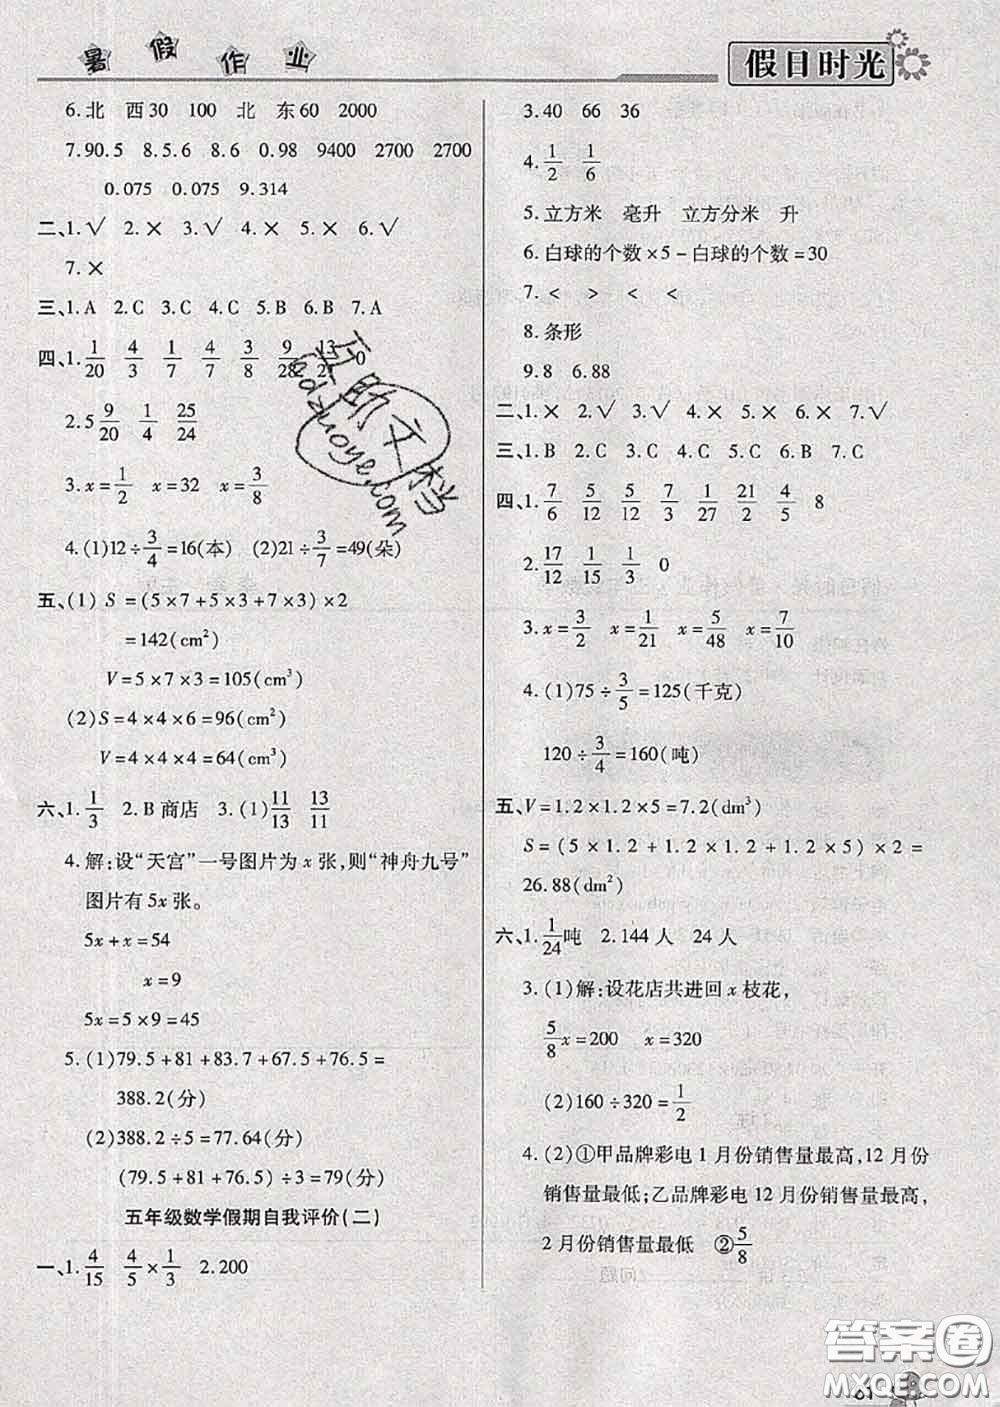 暑假作业
假日时光
6.北 西30 100 北 东60 2000
7.90.5 8.5.6 8.6 0.98 9400 2700 2700
0.075 0.075 9.314
二、1.√ 2.× 3.√ 4.× 5.× 6.√
7.×
三、1.A 2.C 3.C 4.C 5.B 6.B 7.A
四、1. 1/20 4/3 1/7 4/7 3/8 9/28 13/21 0
2.5 9/20 1/4 25/24
3.x=1/2 x=32 x=3/8
4.(1)12÷3/4=16(本) (2)21÷3/7=49(朵)
五、(1) S=(5×7+5×3+7×3)×2
=142(cm²)
V=5×7×3=105(cm³)
(2)S=4×4×6=96(cm²)
V=4×4×4=64(cm³)
六、1. 1/3 2.B商店 3.(1)11/13 13/11
4.解:设“天宫”一号图片为x张,则“神舟九号”
图片有5x张。
5x+x=54
x=9
5x=5×9=45
5.(1)79.5+81+83.7+67.5+76.5=
388.2(分)
(2)388.2÷5=77.64(分)
(79.5+81+76.5)÷3=79(分)
五年级数学假期自我评价(二)
一、1. 4/15 4/5×1/3 2.200
3.40 66 36
4. 1/2 1/6
5.立方米 毫升 立方分米 升
6.白球的个数×5-白球的个数=30
7.< > < <
8.条形
9.8 6.88
二、1.× 2.√ 3.√ 4.× 5.× 6.× 7.√
三、1.B 2.C 3.C 4.C 5.C 6.B 7.C
四、1. 7/6 5/12 5/12 7/3 1/27 21/2 4/5 8
2. 17/12 1/15 1/3 0
3.x=3/2 x=1/21 x=5/48 x=7/10
4.(1)75÷3/5=125(千克)
120÷3/4=160(吨)
五、V=1.2×1.2×5=7.2(dm³)
S=(5×1.2+1.2×1.2+1.2×5)×2=
26.88(dm²)
六、1. 1/24吨 2.144人 24人
3.(1)解:设花店共进回x枝花,
5/8x=200 x=320
(2)160÷320=1/2
4.(2)①甲品牌彩电1月份销售量最高,12月份
销售量最低;乙品牌彩电12月份销售量最高,
2月份销售量最低 ②5/8
互助文档
adzuoye.com
答案圈
MXQE.COM
61